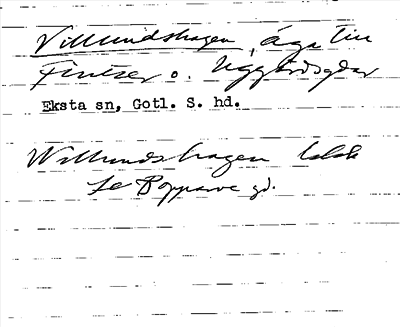 Villmundshagen, äga till
Fintser o. Uggårdsgdar
Eksta sn, Gotl. S. hd.
Willmundshagen
se Bopparve gd.